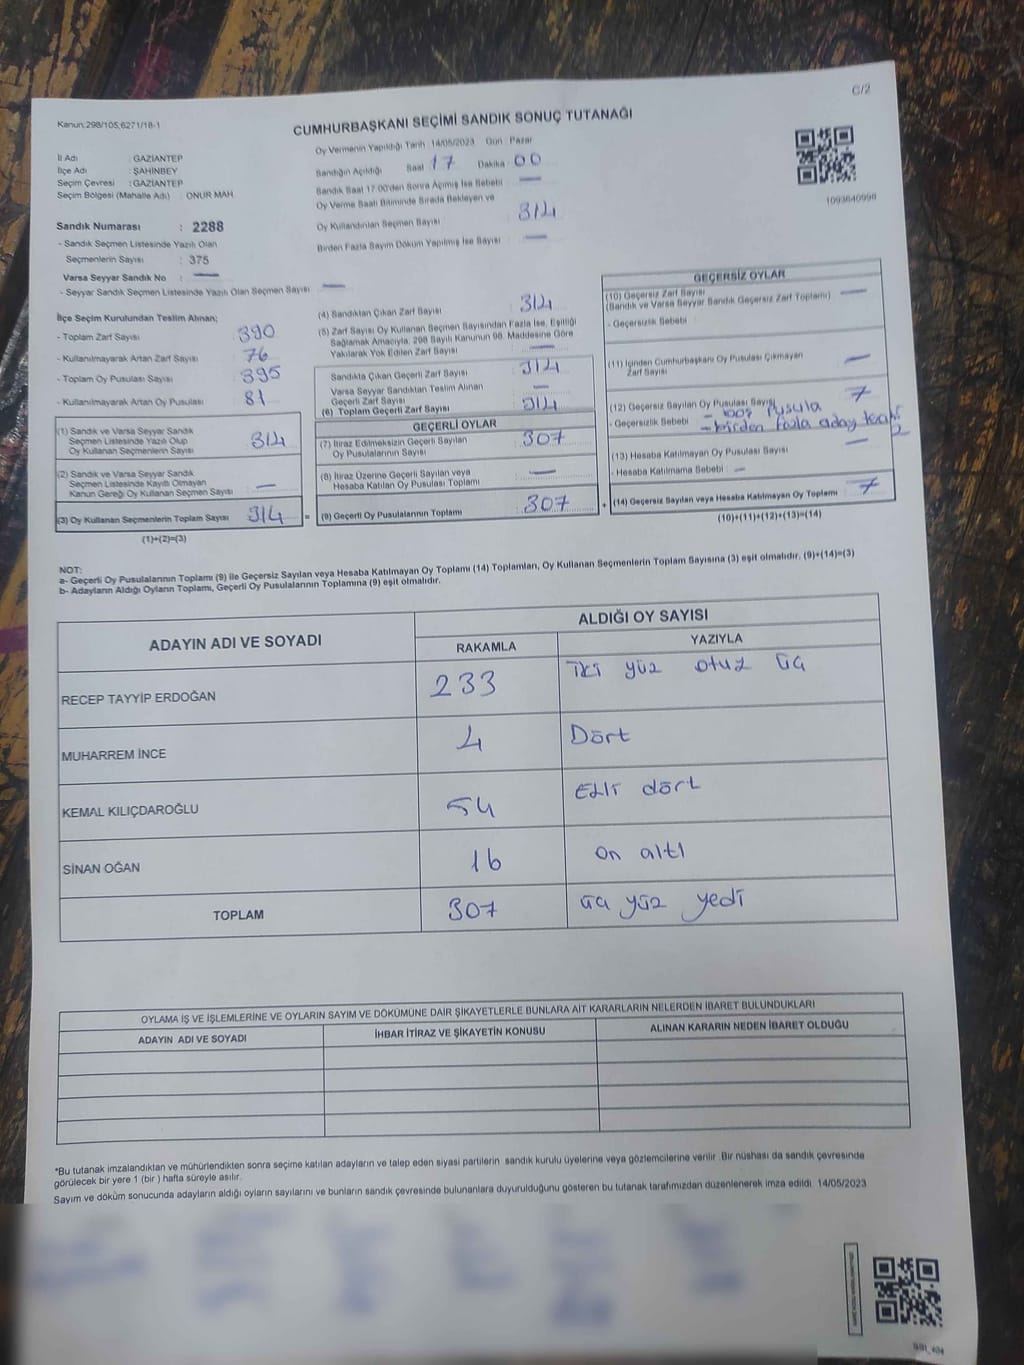 C/2
Kanun:298/105,6271/18-1
CUMHURBAŞKANI SEÇİMİ SANDIK SONUÇ TUTANAĞI
İl Adı : GAZİANTEP
İlçe Adı : ŞAHİNBEY
Seçim Çevresi : GAZİANTEP
Seçim Bölgesi (Mahalle Adı) : ONUR MAH.
Sandık Numarası : 2288
- Sandık Seçmen Listesinde Yazılı Olan
Seçmenlerin Sayısı : 375
Varsa Seyyar Sandık No : —
- Seyyar Sandık Seçmen Listesinde Yazılı Olan Seçmen Sayısı : —
Oy Vermenin Yapıldığı Tarih 14/05/2023 Gün : Pazar
Sandığın Açıldığı Saat 17 Dakika 00
Sandık Saat 17:00'den Sonra Açılmış İse Sebebi : —
Oy Verme Saati Bitiminde Sırada Bekleyen ve
Oy Kullandırılan Seçmen Sayısı : 314
Birden Fazla Sayım Döküm Yapılmış İse Sayısı : —
1093640998
İlçe Seçim Kurulundan Teslim Alınan;
- Toplam Zarf Sayısı : 390
- Kullanılmayarak Artan Zarf Sayısı : 76
- Toplam Oy Pusulası Sayısı : 395
- Kullanılmayarak Artan Oy Pusulası : 81
(1) Sandık ve Varsa Seyyar Sandık
Seçmen Listesinde Yazılı Olup
Oy Kullanan Seçmenlerin Sayısı : 314
(2) Sandık ve Varsa Seyyar Sandık
Seçmen Listesinde Kayıtlı Olmayan
Kanun Gereği Oy Kullanan Seçmen Sayısı : —
(3) Oy Kullanan Seçmenlerin Toplam Sayısı : 314 =
(1)+(2)=(3)
(4) Sandıktan Çıkan Zarf Sayısı : 314
(5) Zarf Sayısı Oy Kullanan Seçmen Sayısından Fazla İse, Eşitliği
Sağlamak Amacıyla, 298 Sayılı Kanunun 98. Maddesine Göre
Yakılarak Yok Edilen Zarf Sayısı : —
Sandıkta Çıkan Geçerli Zarf Sayısı : 314
Varsa Seyyar Sandıktan Teslim Alınan
Geçerli Zarf Sayısı : —
(6) Toplam Geçerli Zarf Sayısı : 314
GEÇERLİ OYLAR
(7) İtiraz Edilmeksizin Geçerli Sayılan
Oy Pusulalarının Sayısı : 307
(8) İtiraz Üzerine Geçerli Sayılan veya
Hesaba Katılan Oy Pusulası Toplamı : —
(9) Geçerli Oy Pusulalarının Toplamı : 307 +
GEÇERSİZ OYLAR
(10) Geçersiz Zarf Sayısı : —
(Sandık ve Varsa Seyyar Sandık Geçersiz Zarf Toplamı)
- Geçersizlik Sebebi :
(11) İçinden Cumhurbaşkanı Oy Pusulası Çıkmayan
Zarf Sayısı : —
(12) Geçersiz Sayılan Oy Pusulası Sayısı : 7
- Geçersizlik Sebebi : pusula
- birden fazla aday
(13) Hesaba Katılmayan Oy Pusulası Sayısı : —
- Hesaba Katılmama Sebebi : —
(14) Geçersiz Sayılan veya Hesaba Katılmayan Oy Toplamı : 7
(10)+(11)+(12)+(13)=(14)
NOT:
a- Geçerli Oy Pusulalarının Toplamı (9) ile Geçersiz Sayılan veya Hesaba Katılmayan Oy Toplamı (14) Toplamları, Oy Kullanan Seçmenlerin Toplam Sayısına (3) eşit olmalıdır. (9)+(14)=(3)
b- Adayların Aldığı Oyların Toplamı, Geçerli Oy Pusulalarının Toplamına (9) eşit olmalıdır.
ADAYIN ADI VE SOYADI ALDIĞI OY SAYISI
RAKAMLA YAZIYLA
RECEP TAYYİP ERDOĞAN 233 iki yüz otuz üç
MUHARREM İNCE 4 Dört
KEMAL KILIÇDAROĞLU 54 Elli dört
SİNAN OĞAN 16 on altı
TOPLAM 307 üç yüz yedi
OYLAMA İŞ VE İŞLEMLERİNE VE OYLARIN SAYIM VE DÖKÜMÜNE DAİR ŞİKAYETLERLE BUNLARA AİT KARARLARIN NELERDEN İBARET BULUNDUKLARI
ADAYIN ADI VE SOYADI İHBAR İTİRAZ VE ŞİKAYETİN KONUSU ALINAN KARARIN NEDEN İBARET OLDUĞU
*Bu tutanak imzalandıktan ve mühürlendikten sonra seçime katılan adayların ve talep eden siyasi partilerin sandık kurulu üyelerine veya gözlemcilerine verilir .Bir nüshası da sandık çevresinde
görülecek bir yere 1 (bir ) hafta süreyle asılır.
Sayım ve döküm sonucunda adayların aldığı oyların sayılarını ve bunların sandık çevresinde bulunanlara duyurulduğunu gösteren bu tutanak tarafımızdan düzenlenerek imza edildi. 14/05/2023